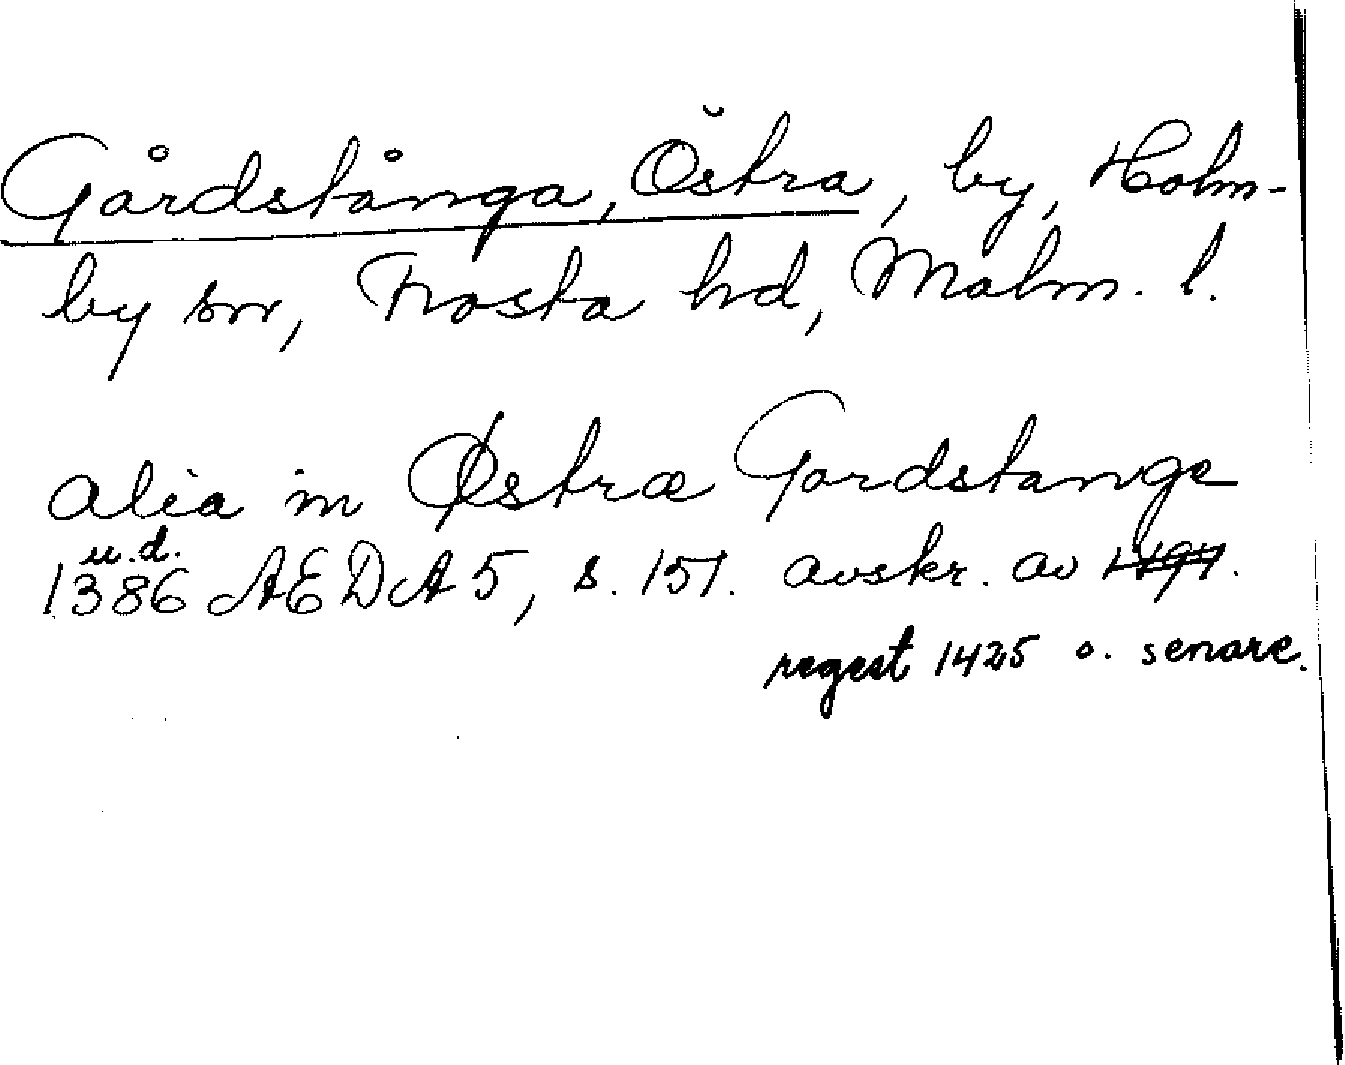 Gårdstånga, Östra, by, Holm-
by sn, Frosta hd, Malm. l.
alia in Østra Gordstange
u.d.
1386 AEDA 5, s. 151. avskr. av 1494.
regest 1425 o. senare.